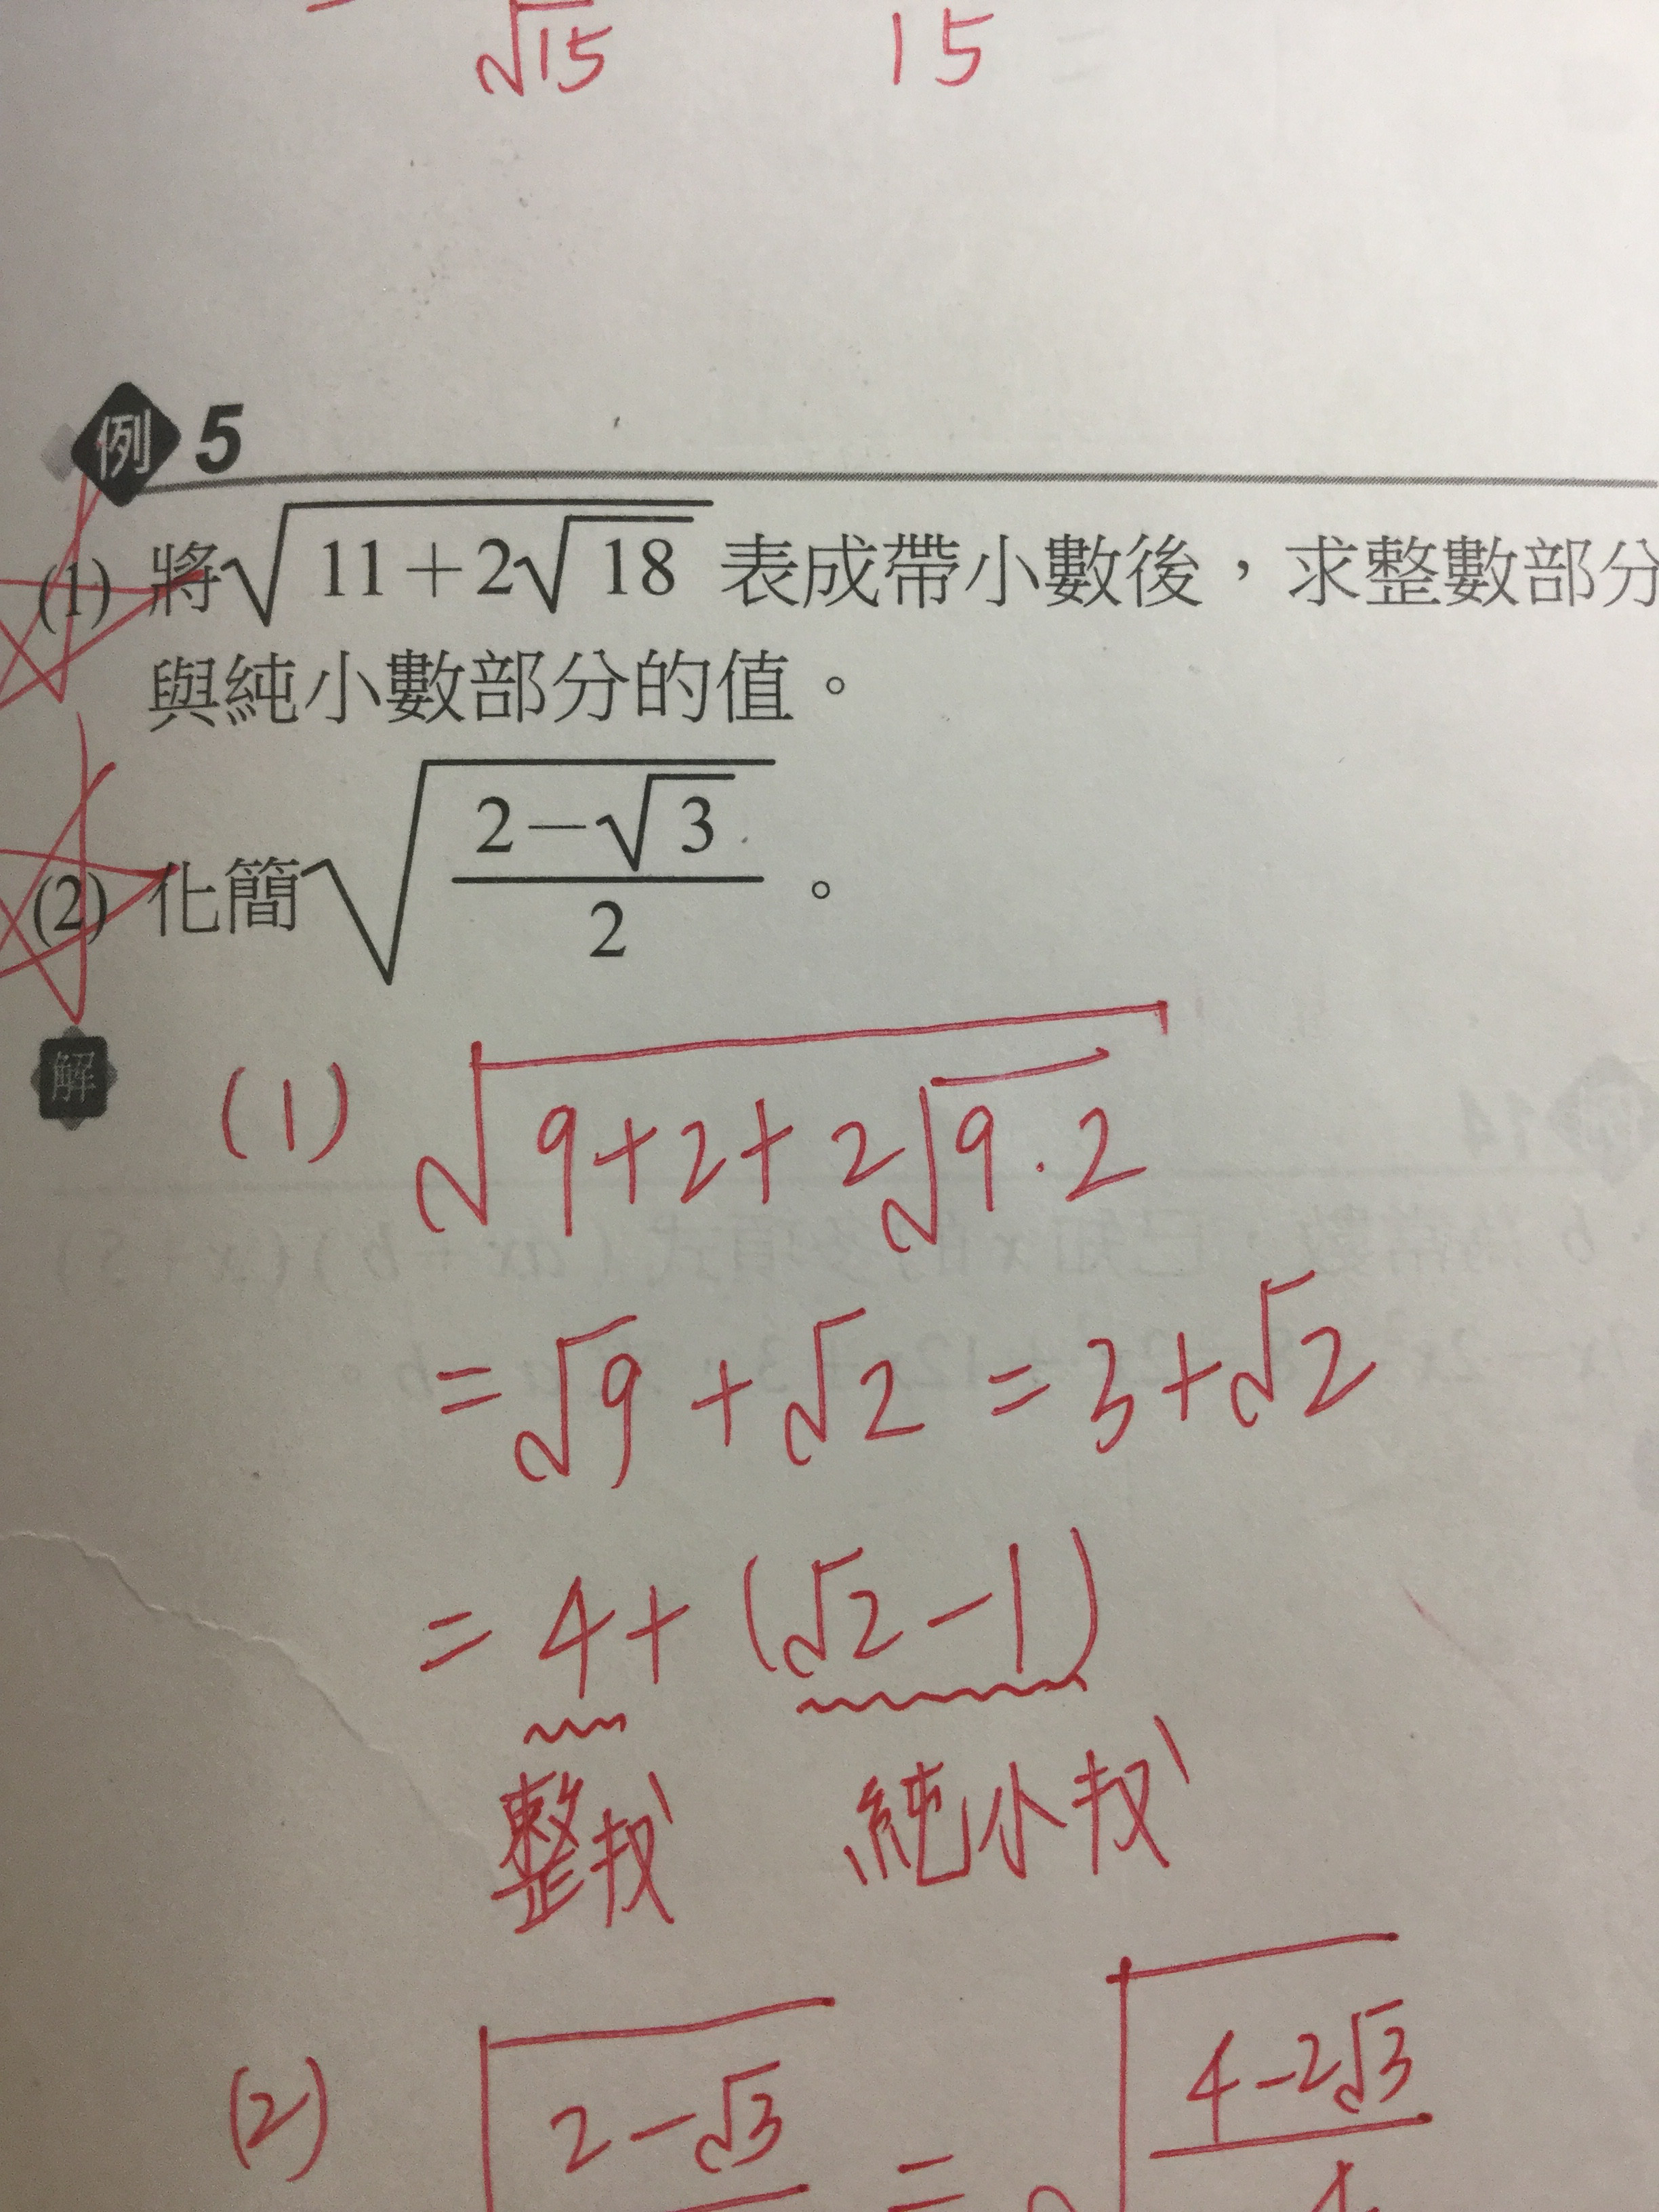 √15 15
例 5
(1) 將√(11+2√18) 表成帶小數後，求整數部分
與純小數部分的值。
(2) 化簡√((2−√3)/2)。
解
(1) √(9+2+2√(9·2))
=√9+√2=3+√2
=4+(√2−1)
整数 純小数
(2) √(2−√3 = √((4−2√3)/4